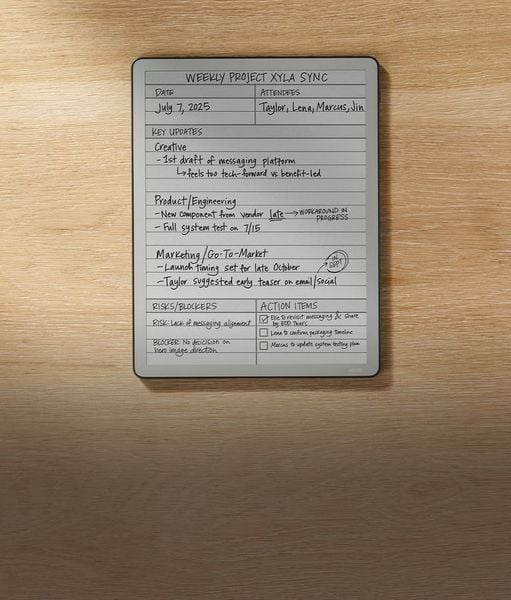 WEEKLY PROJECT XYLA SYNC
DATE
ATTENDEES
July 7, 2025
Taylor, Lena, Marcus, Jin
KEY UPDATES
Creative
- 1st draft of messaging platform
↳ feels too tech-forward vs benefit-led
Product/Engineering
- New component from vendor late → WORKAROUND IN PROGRESS
- Full system test on 7/15
Marketing/Go-To-Market
- Launch timing set for late October
IN SEPT
- Taylor suggested early teaser on email/social
RISKS/BLOCKERS
RISK: Lack of messaging alignment
BLOCKER: No decision on
hero image direction
ACTION ITEMS
to revisit messaging & share
by EOD Thurs
Lena to confirm packaging timeline
Marcus to update system testing plan